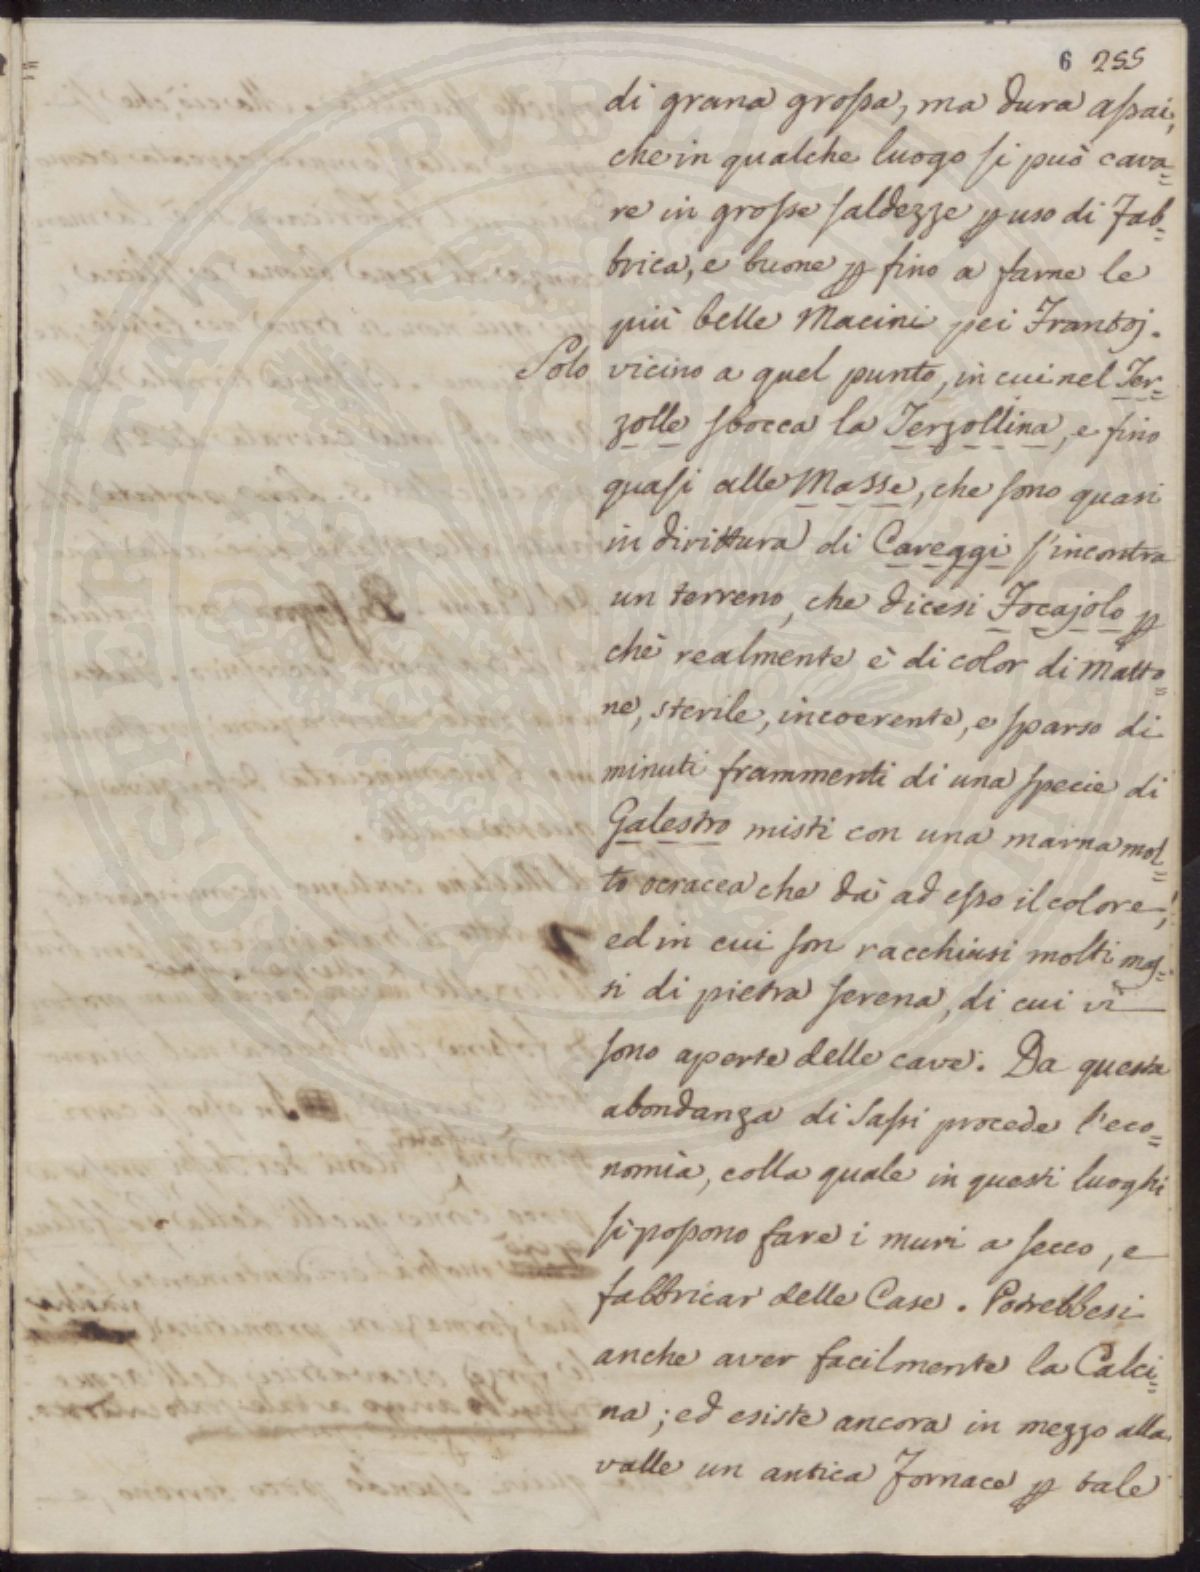 6 255
di grana grossa, ma dura assai,
che in qualche luogo si può cava=
re in grosse saldezze p uso di Fab=
brica, e buone p fino a farne le
più belle Macini pei Frantoj.
Solo vicino a quel punto, in cui nel Ter=
zolle sbocca la Terzollina, e fino
quasi alle Masse, che sono quasi
in dirittura di Careggi s'incontra
un terreno, che dicesi Focajolo p
chè realmente è di color di Matto=
ne, sterile, incoerente, e sparso di
minuti frammenti di una specie di
Galestro misti con una marna mol=
to ocracea che dà ad esso il colore,
ed in cui son racchiusi molti mas=
si di pietra serena, di cui vi
sono aperte delle cave. Da questa
abondanza di Sassi procede l'eco=
nomìa, colla quale in questi luoghi
si possono fare i muri a secco, e
fabbricar delle Case. Potrebbesi
anche aver facilmente la Calci=
na; ed esiste ancora in mezzo alla
valle un antica Fornace p tale